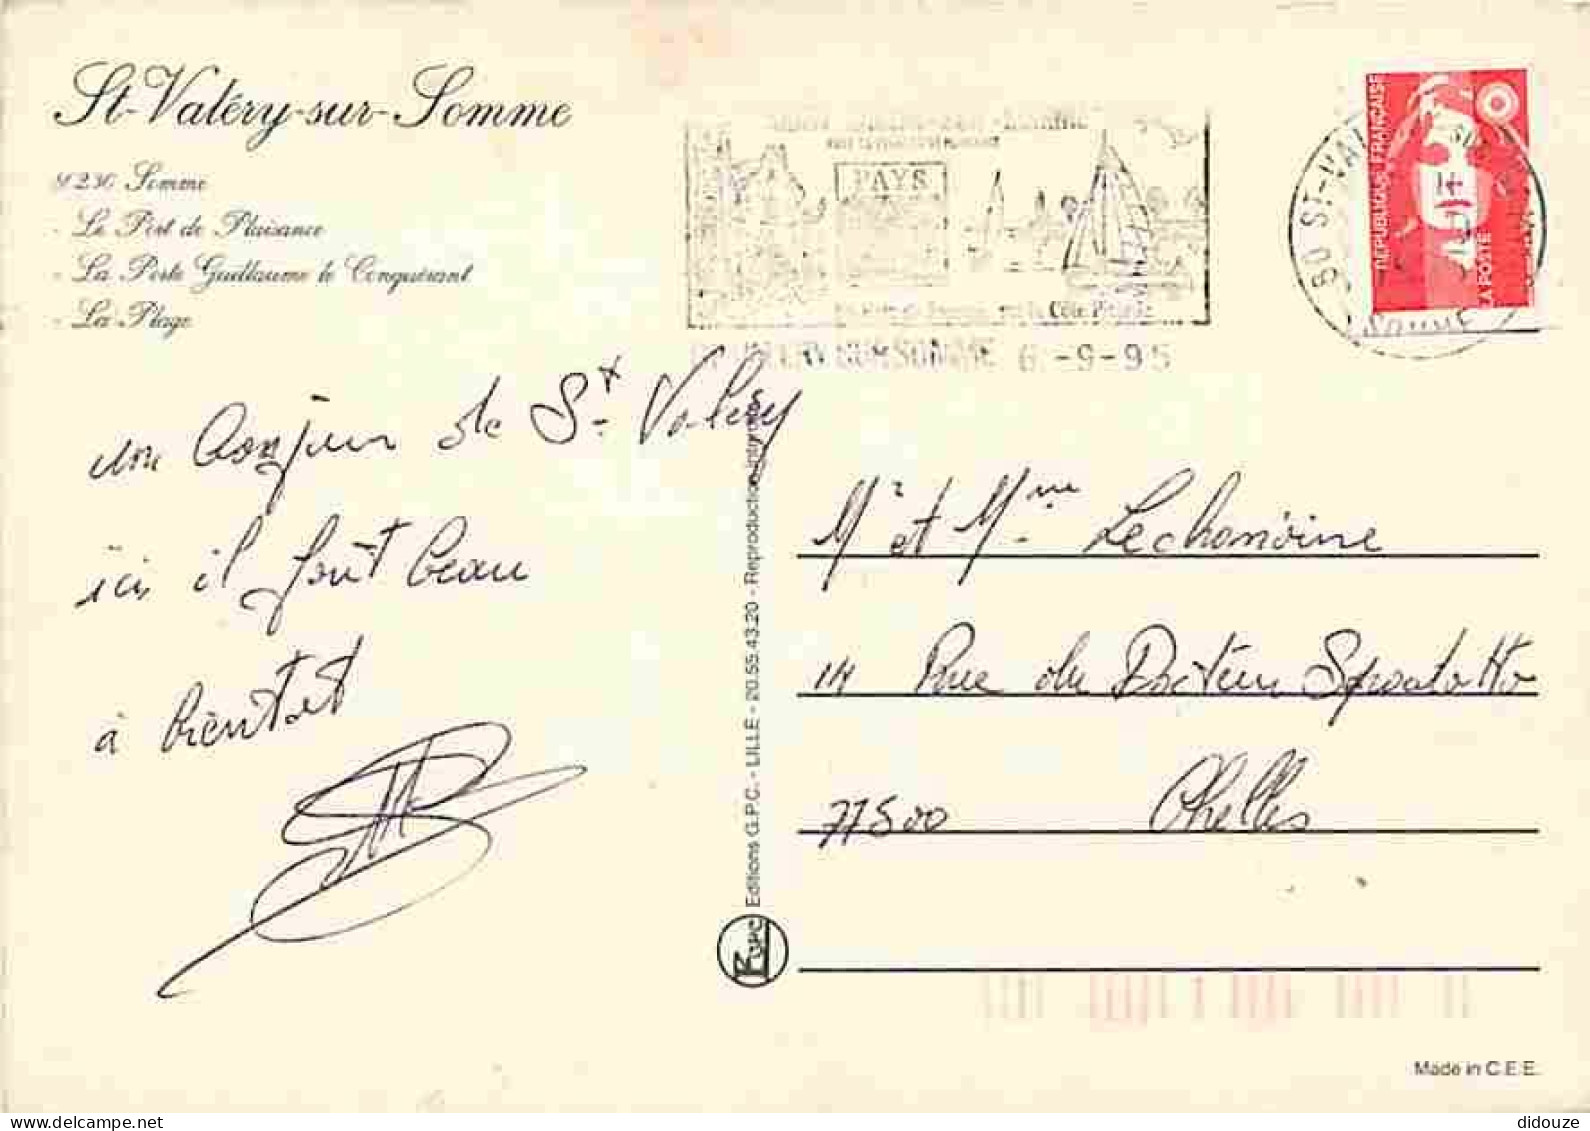 St-Valéry-sur-Somme
80230 Somme
- Le Port de Plaisance
- La Porte Guillaume le Conquérant
- La Plage
PAYS
la Côte Picarde
SUR SOMME 6 -9-95
80 ST-VAL
SOMME
RÉPUBLIQUE FRANÇAISE
LA POSTE
un bonjour de St Valery
ici il fait beau
à bientôt
Editions G.P.C. - LILLE - 20.55.43.20 - Reproduction interdite
GPC
Mr et Mme Lechanoine
14 Rue du Docteur Sproatotto
77500 Chelles
Made in C.E.E.
didouze